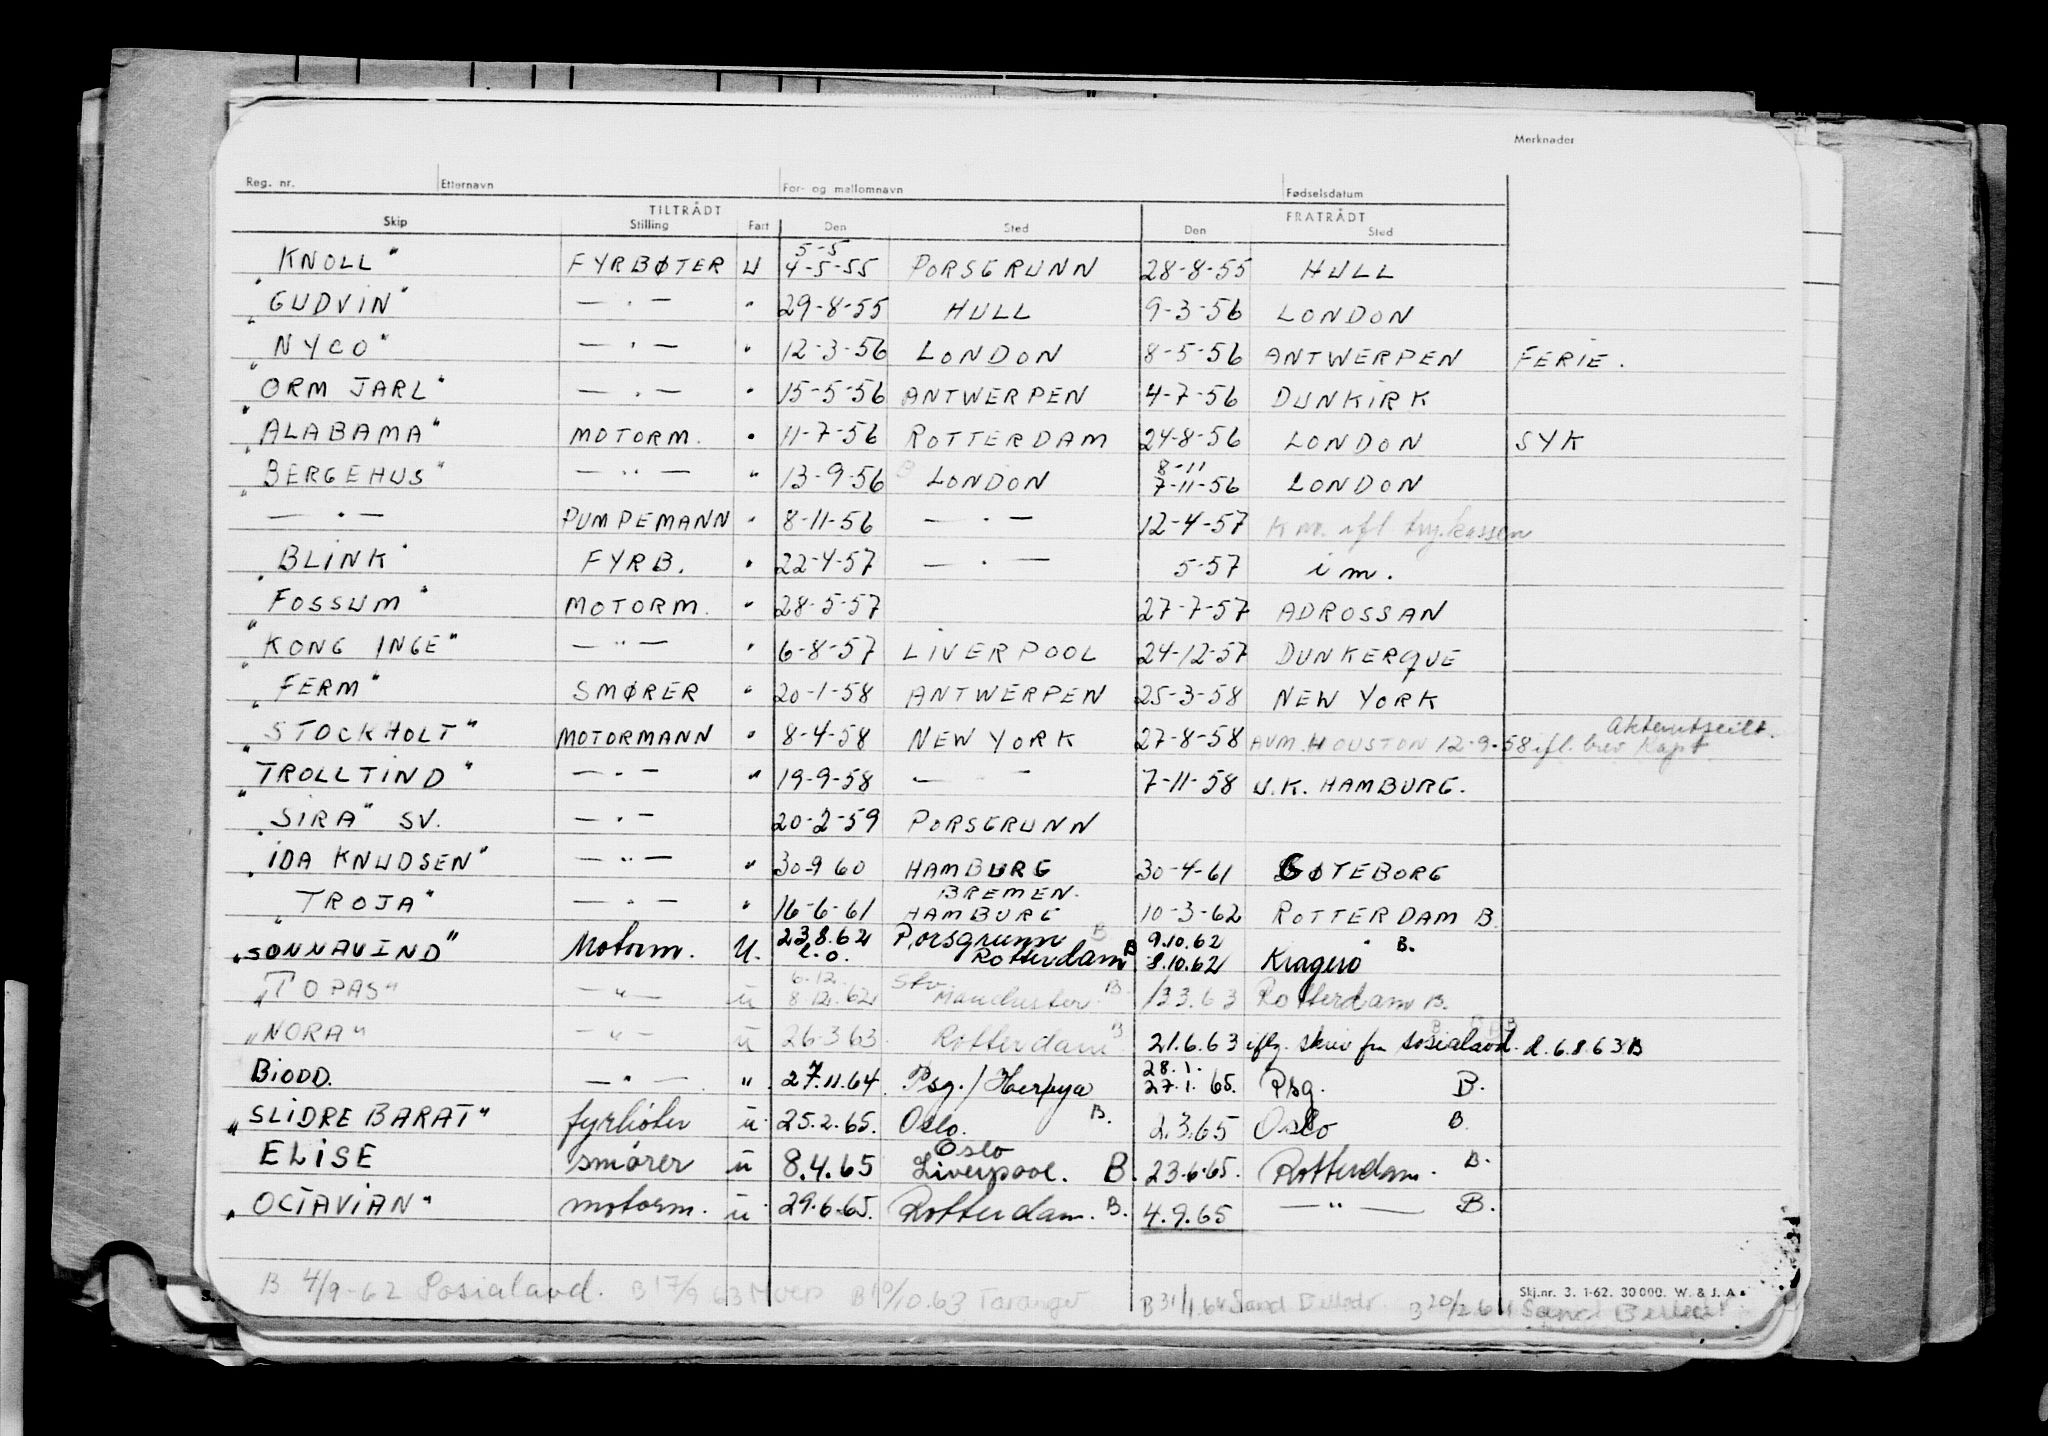 Merknader
Reg. nr. Etternavn For- og mellomnavn Fødselsdatum
TILTRÅDT FRATRÅDT
Skip Stilling Fart Den Sted Den Sted
5-5
KNOLL" FYRBØTER U 4-5-55 PORSGRUNN 28-8-55 HULL
"GUDVIN" — " — " 29-8-55 HULL 9-3-56 LONDON
"NYCO" — " — " 12-3-56 LONDON 8-5-56 ANTWERPEN FERIE.
"ORM JARL" — " — " 15-5-56 ANTWERPEN 4-7-56 DUNKIRK
"ALABAMA" MOTORM. " 11-7-56 ROTTERDAM 24-8-56 LONDON SYK
8-11
"BERGEHUS" — " — " 13-9-56 B LONDON 7-11-56 LONDON
— " — PUMPEMANN " 8-11-56 — " — 12-4-57
"BLINK" FYRB. " 22-4-57 — " — 5-57 i m.
"FOSSUM" MOTORM. " 28-5-57 27-7-57 ADROSSAN
"KONG INGE" — " — " 6-8-57 LIVERPOOL 24-12-57 DUNKERQUE
"FERM" SMØRER " 20-1-58 ANTWERPEN 25-3-58 NEW YORK
Akterutseilt.
"STOCKHOLT" MOTORMANN " 8-4-58 NEW YORK 27-8-58 AVM. HOUSTON 12-9-58 ifl. brev Kapt.
"TROLLTIND" — " — " 19-9-58 — " — 7-11-58 U.K. HAMBURG.
"SIRA" SV. — " — 20-2-59 PORSGRUNN
"IDA KNUDSEN" — " — " 30-9 60 HAMBURG 30-4-61 GØTEBORG
BREMEN.
"TROJA" — " — " 16-6-61 HAMBURG 10-3-62 ROTTERDAM B
23.8.62 Porsgrunn B 9.10.62
"SONNAVIND" Motorm. U. Rotterdam B 8.10.62 Kragerø B.
6.12. Stv.
"TOPAS" — " — ü 8.12.62 Manchester B. 13.3.63 Rotterdam B.
"NORA" — " — ü 26.3.63 Rotterdam B 21.6.63 iflg. skriv fra sosialavd. d. 6.8.63 B
28.1.
BIODD. — " — ". 27.11.64 Psg./Herøya 27.1.65. Psg. B.
"SLIDRE BARAT" fyrbøter ü 25.2.65. Oslo. B. 2.3.65 Oslo B.
Oslo
ELISE smører ü 8.4.65 Liverpool. B. 23.6.65. Rotterdam. B.
"OCTAVIAN" motorm. ü 29.6.65. Rotterdam. B. 4.9.65 — " — B.
B 4/9-62 Sosialavd. B 17/9 63 B 10/10.63 Taranger B 31/1.64 Sand B 20/2.64 Sand
Skj.nr. 3. 1-62. 30 000. W. & J. A.